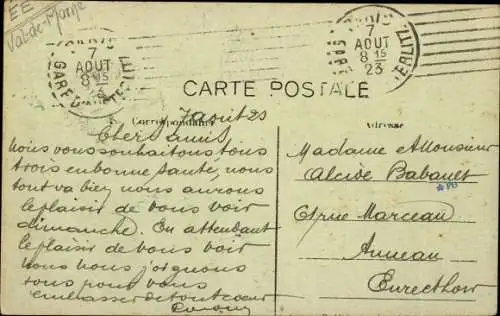 EE
Val-de-Marne
7
AOUT
8 15
GARE
7
AOUT
8 15
23
GARE
CARTE POSTALE
Correspondance
Adresse
7 aout 23
Chers amis
Nous vous souhaitons tous
trois en bonne santé, nous
tout va bien nous aurons
le plaisir de vous voir
dimanche. En attendant
le plaisir de vous voir
nous nous joignons
tous pour vous
embrasser de tout coeur
Madame et Monsieur
Alcide Babault
rue Marceau
Auneau
Eure et Loir